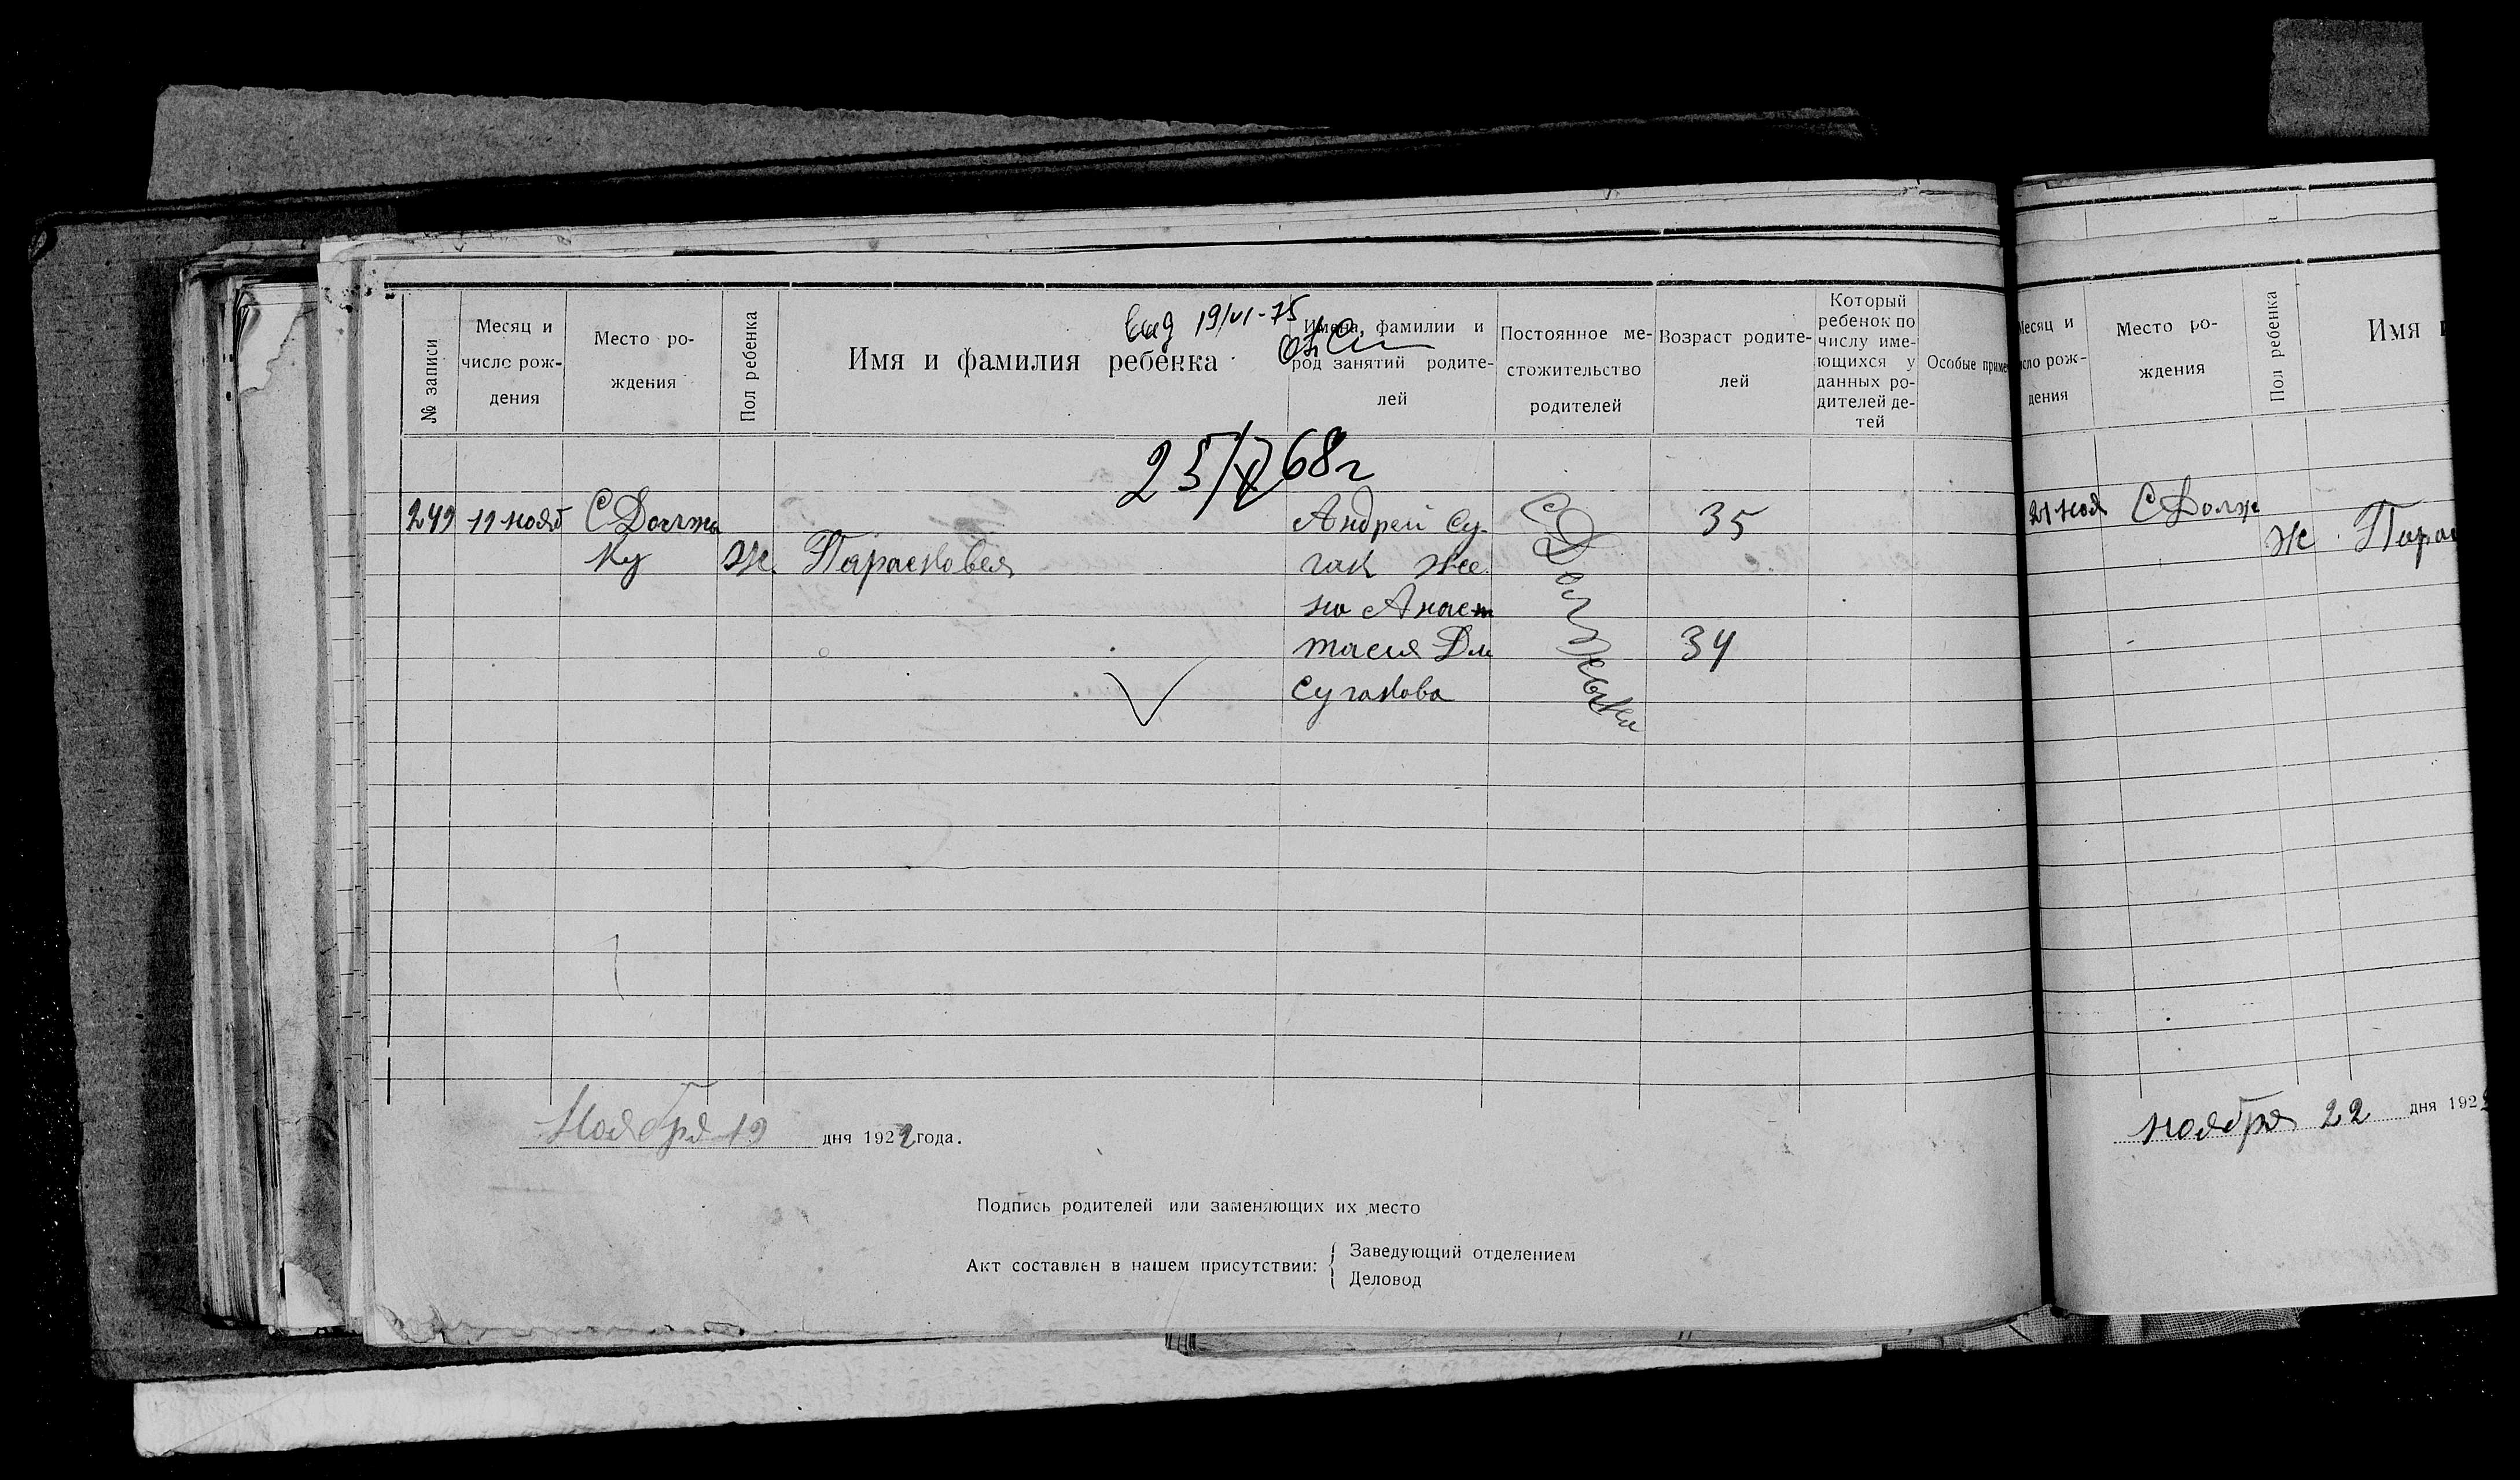 19/VI-75
№ записи
Месяц и
число рож-
дения
Место ро-
ждения
Пол ребенка
Имя и фамилия ребенка
Имена, фамилии и
род занятий родите-
лей
Постоянное ме-
стожительство
родителей
Возраст родите-
лей
Который
ребенок по
числу име-
ющихся у
данных ро-
дителей де-
тей
Особые приме
25/ 68г
249 11 нояб С Должи Андрей Су- 35
ку Ж. Парасковея гак же
на Анаст
тасия Дм 34
Сугакова
С Должика
Ноября 19 дня 1922 года.
Подпись родителей или заменяющих их место
Акт составлен в нашем присутствии: { Заведующий отделением
Деловод
Месяц и
число рож-
дения
Место ро-
ждения
Пол ребенка
Имя и
21 ноя С Долж
Ж. Парас
ноября 22 дня 192